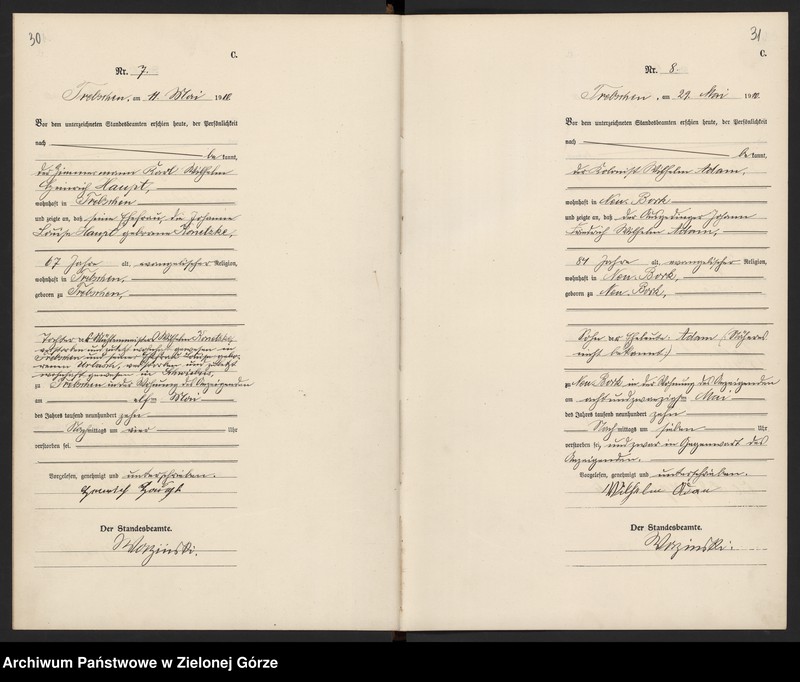 30
C.
Nr. 7.
Trebschen, am 11. Mai 1910.
Vor dem unterzeichneten Standesbeamten erschien heute, der Persönlichkeit
nach
be kannt,
der Zimmermann Karl Wilhelm
Heinrich Haupt,
wohnhaft in Trebschen
und zeigte an, daß seine Ehefrau, die Johanne
Louise Haupt geborene Konetzke,
67 Jahre alt, evangelischer Religion,
wohnhaft in Trebschen,
geboren zu Trebschen,
Tochter des Mühlenmeisters Wilhelm Konetzke,
verstorben und zuletzt wohnhaft gewesen in
Trebschen und seiner Ehefrau Louise gebo-
renen verstorben und zuletzt
wohnhaft gewesen in
zu Trebschen in der Wohnung des Anzeigenden
am elften Mai
des Jahres tausend neunhundert zehn
Nachmittags um vier Uhr
verstorben sei.
Vorgelesen, genehmigt und unterschrieben.
Heinrich Haupt
Der Standesbeamte.
31
C.
Nr. 8.
Trebschen, am 29. Mai 1910.
Vor dem unterzeichneten Standesbeamten erschien heute, der Persönlichkeit
nach
be kannt,
der Kolonist Wilhelm Adam,
wohnhaft in Neu. Bork
und zeigte an, daß der Ausgedinger Johann
Friedrich Wilhelm Adam,
81 Jahre alt, evangelischer Religion,
wohnhaft in Neu. Bork,
geboren zu Neu. Bork,
Sohn der Eheleute Adam (Näheres
nicht bekannt.)
zu Neu Bork in der Wohnung des Anzeigenden
am achtundzwanzigsten Mai
des Jahres tausend neunhundert zehn
Nachmittags um sieben Uhr
verstorben sei, und zwar in Gegenwart des
Anzeigenden.
Vorgelesen, genehmigt und unterschrieben.
Wilhelm Adam
Der Standesbeamte.
Archiwum Państwowe w Zielonej Górze